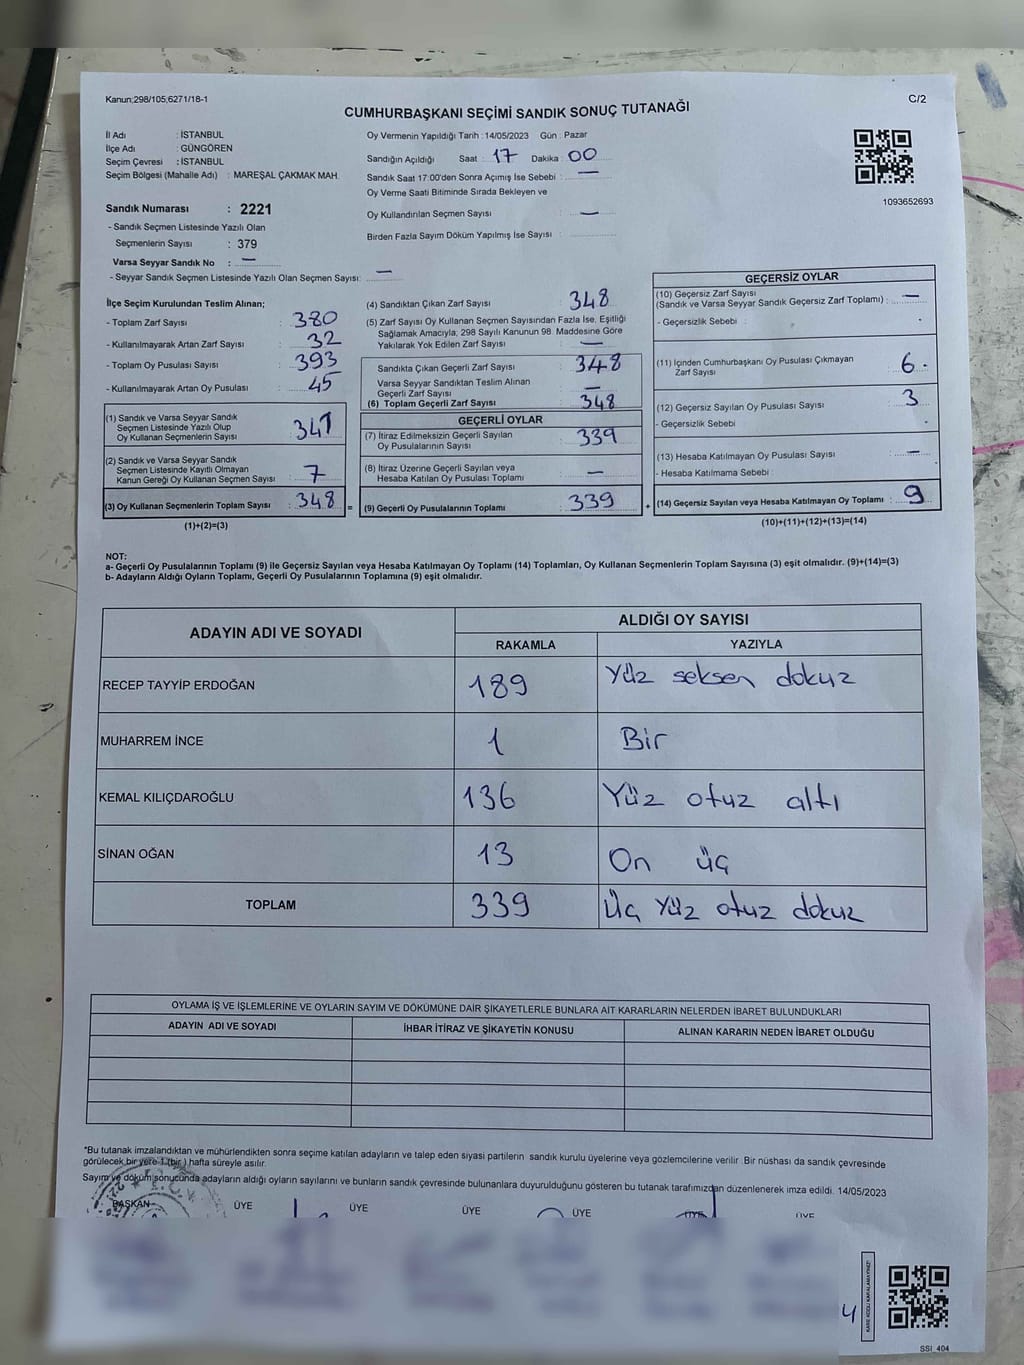 Kanun;298/105;6271/18-1
C/2
CUMHURBAŞKANI SEÇİMİ SANDIK SONUÇ TUTANAĞI
İl Adı : İSTANBUL
İlçe Adı : GÜNGÖREN
Seçim Çevresi : İSTANBUL
Seçim Bölgesi (Mahalle Adı) : MAREŞAL ÇAKMAK MAH.
Sandık Numarası : 2221
- Sandık Seçmen Listesinde Yazılı Olan
Seçmenlerin Sayısı : 379
Varsa Seyyar Sandık No : —
- Seyyar Sandık Seçmen Listesinde Yazılı Olan Seçmen Sayısı: —
Oy Vermenin Yapıldığı Tarih : 14/05/2023 Gün : Pazar
Sandığın Açıldığı Saat : 17 Dakika : 00
Sandık Saat 17:00'den Sonra Açımış İse Sebebi : —
Oy Verme Saati Bitiminde Sırada Bekleyen ve
Oy Kullandırılan Seçmen Sayısı : —
Birden Fazla Sayım Döküm Yapılmış İse Sayısı :
1093652693
İlçe Seçim Kurulundan Teslim Alınan;
- Toplam Zarf Sayısı : 380
- Kullanılmayarak Artan Zarf Sayısı : 32
- Toplam Oy Pusulası Sayısı : 393
- Kullanılmayarak Artan Oy Pusulası : 45
(1) Sandık ve Varsa Seyyar Sandık
Seçmen Listesinde Yazılı Olup
Oy Kullanan Seçmenlerin Sayısı : 341
(2) Sandık ve Varsa Seyyar Sandık
Seçmen Listesinde Kayıtlı Olmayan
Kanun Gereği Oy Kullanan Seçmen Sayısı : 7
(3) Oy Kullanan Seçmenlerin Toplam Sayısı : 348
(1)+(2)=(3)
(4) Sandıktan Çıkan Zarf Sayısı : 348
(5) Zarf Sayısı Oy Kullanan Seçmen Sayısından Fazla İse, Eşitliği
Sağlamak Amacıyla, 298 Sayılı Kanunun 98. Maddesine Göre
Yakılarak Yok Edilen Zarf Sayısı : —
Sandıkta Çıkan Geçerli Zarf Sayısı : 348
Varsa Seyyar Sandıktan Teslim Alınan
Geçerli Zarf Sayısı : —
(6) Toplam Geçerli Zarf Sayısı : 348
GEÇERLİ OYLAR
(7) İtiraz Edilmeksizin Geçerli Sayılan
Oy Pusulalarının Sayısı : 339
(8) İtiraz Üzerine Geçerli Sayılan veya
Hesaba Katılan Oy Pusulası Toplamı : —
= (9) Geçerli Oy Pusulalarının Toplamı : 339
GEÇERSİZ OYLAR
(10) Geçersiz Zarf Sayısı
(Sandık ve Varsa Seyyar Sandık Geçersiz Zarf Toplamı) : —
- Geçersizlik Sebebi :
(11) İçinden Cumhurbaşkanı Oy Pusulası Çıkmayan
Zarf Sayısı : 6
(12) Geçersiz Sayılan Oy Pusulası Sayısı : 3
- Geçersizlik Sebebi :
(13) Hesaba Katılmayan Oy Pusulası Sayısı : —
- Hesaba Katılmama Sebebi :
+ (14) Geçersiz Sayılan veya Hesaba Katılmayan Oy Toplamı : 9
(10)+(11)+(12)+(13)=(14)
NOT:
a- Geçerli Oy Pusulalarının Toplamı (9) ile Geçersiz Sayılan veya Hesaba Katılmayan Oy Toplamı (14) Toplamları, Oy Kullanan Seçmenlerin Toplam Sayısına (3) eşit olmalıdır. (9)+(14)=(3)
b- Adayların Aldığı Oyların Toplamı, Geçerli Oy Pusulalarının Toplamına (9) eşit olmalıdır.
ADAYIN ADI VE SOYADI
ALDIĞI OY SAYISI
RAKAMLA YAZIYLA
RECEP TAYYİP ERDOĞAN 189 Yüz seksen dokuz
MUHARREM İNCE 1 Bir
KEMAL KILIÇDAROĞLU 136 Yüz otuz altı
SİNAN OĞAN 13 On üç
TOPLAM 339 Üç yüz otuz dokuz
OYLAMA İŞ VE İŞLEMLERİNE VE OYLARIN SAYIM VE DÖKÜMÜNE DAİR ŞİKAYETLERLE BUNLARA AİT KARARLARIN NELERDEN İBARET BULUNDUKLARI
ADAYIN ADI VE SOYADI İHBAR İTİRAZ VE ŞİKAYETİN KONUSU ALINAN KARARIN NEDEN İBARET OLDUĞU
*Bu tutanak imzalandıktan ve mühürlendikten sonra seçime katılan adayların ve talep eden siyasi partilerin sandık kurulu üyelerine veya gözlemcilerine verilir. Bir nüshası da sandık çevresinde
görülecek bir yere 1 (bir) hafta süreyle asılır.
Sayım ve döküm sonucunda adayların aldığı oyların sayılarını ve bunların sandık çevresinde bulunanlara duyurulduğunu gösteren bu tutanak tarafımızdan düzenlenerek imza edildi. 14/05/2023
BAŞKAN ÜYE ÜYE ÜYE ÜYE ÜYE ÜYE
T.C.
4
SSI_404